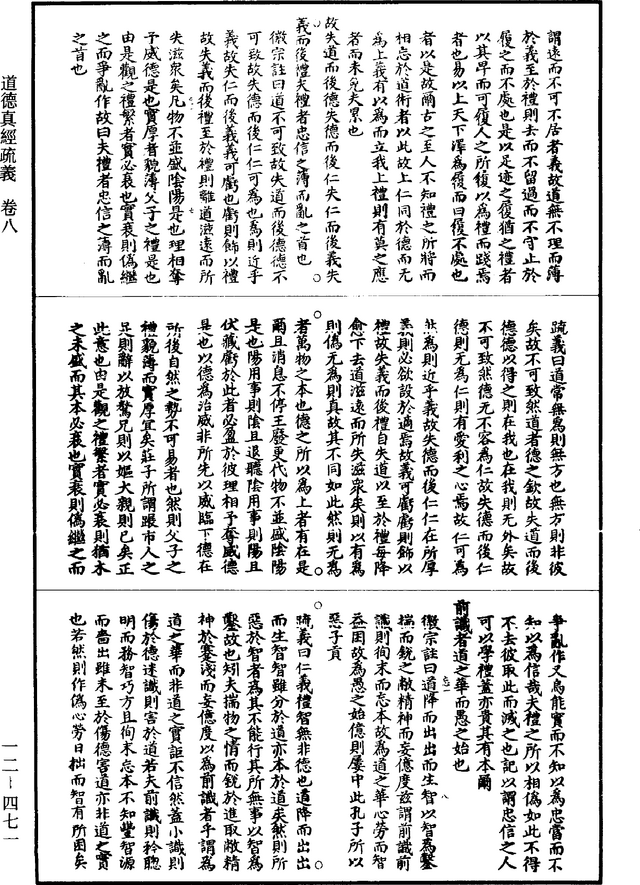 謂遠而不可不居者義故道無不理而薄
於義至於禮則去而不留過而不守止於
履之而不處也是以足迹之履猶之禮者
以其卑而可復人之所履以為禮而踐焉
者也易以上天下澤為履而曰履不處也
者以是故爾古之至人不知禮之所將而
相忘於道術者以此故上仁同於德而無
為上義有以為而立我上禮則有莫之應
者而未免夫累也
故失道而後德失德而後仁失仁而後義失
義而後禮夫禮者忠信之薄而亂之首也
徽宗註曰道不可致故失道而後德德不
可致故失德而後仁仁可為也為則近乎
義故失仁而後義義可虧也虧則飾以禮
故失義而後禮至於禮則離道滋遠而所
失滋衆矣凡物不並盛陰陽是也理相奪
予威德是也實厚者貌薄父子之禮是也
由是觀之禮繁者實必衰也實衰則偽繼
之而爭亂作故曰夫禮者忠信之薄而亂
之首也
疏義曰道常無為則無方也無方則非彼
矣故不可致然道者德之欽故失道而後
德德以得之則在我也在我則无外矣故
不可致然德无不容為仁故失德而後仁
德則无為仁則有愛利之心焉故仁可為
此為則近乎義故失德而後仁仁在所厚
焉則必欲設於適焉故義可虧虧則飾以
禮故失義而後禮自失道以至於禮每降
愈下去道滋遠而所失滋衆矣則以有為
則偽无為則真故其不同如此然則无為
者萬物之本也德之所以為上者有在是
爾且消息不停王廢更代物不並盛陰陽
是也陽用事則陰且退聽陰用事則陽且
伏藏虧於此者必盈於彼理相予奪威德
是也以德為治威非所先以威臨下德在
所後自然之勢不可易者也然則父子之
禮貌薄而實厚宜矣莊子所謂蹍市人之
足則辭以放驁兄則以嫗大親則已矣正
此意也由是觀之禮繁者實必衰則猶木
之末盛而其本必衰也實衰則偽繼之而
爭亂作又烏能實而不知以為忠當而不
知以為信哉夫禮之所以相偽如此不得
不去彼取此而滅之也記以謂忠信之人
可以學禮蓋亦貴其有本爾
前識者道之華而愚之始也
徽宗註曰道降而出出而生智以智為鑿
揣而銳之敝精神而妄億度茲謂前識前
識則徇末而忘本故為道之華心勞而智
益困故為愚之始億則屢中此孔子所以
惡子貢
疏義曰仁義禮智無非德也道降而出出
而生智智雖分於道亦本於道矣然則所
惡於智者為其不能行其所無事以智為
鑿故也矧夫揣物之情而銳於進取敝精
神於蹇淺而妄億度以為前識者乎謂為
道之華而非道之實詎不信然蓋小識則
傷於德達識則害於道若夫前識則矜聰
明而務智巧方且徇末忘本不知豐智源
而嗇出雖未至於傷德害道亦非道之實
也若然則作偽心勞日拙而智有所困矣
道德真經疏義 卷八
一二—四七一